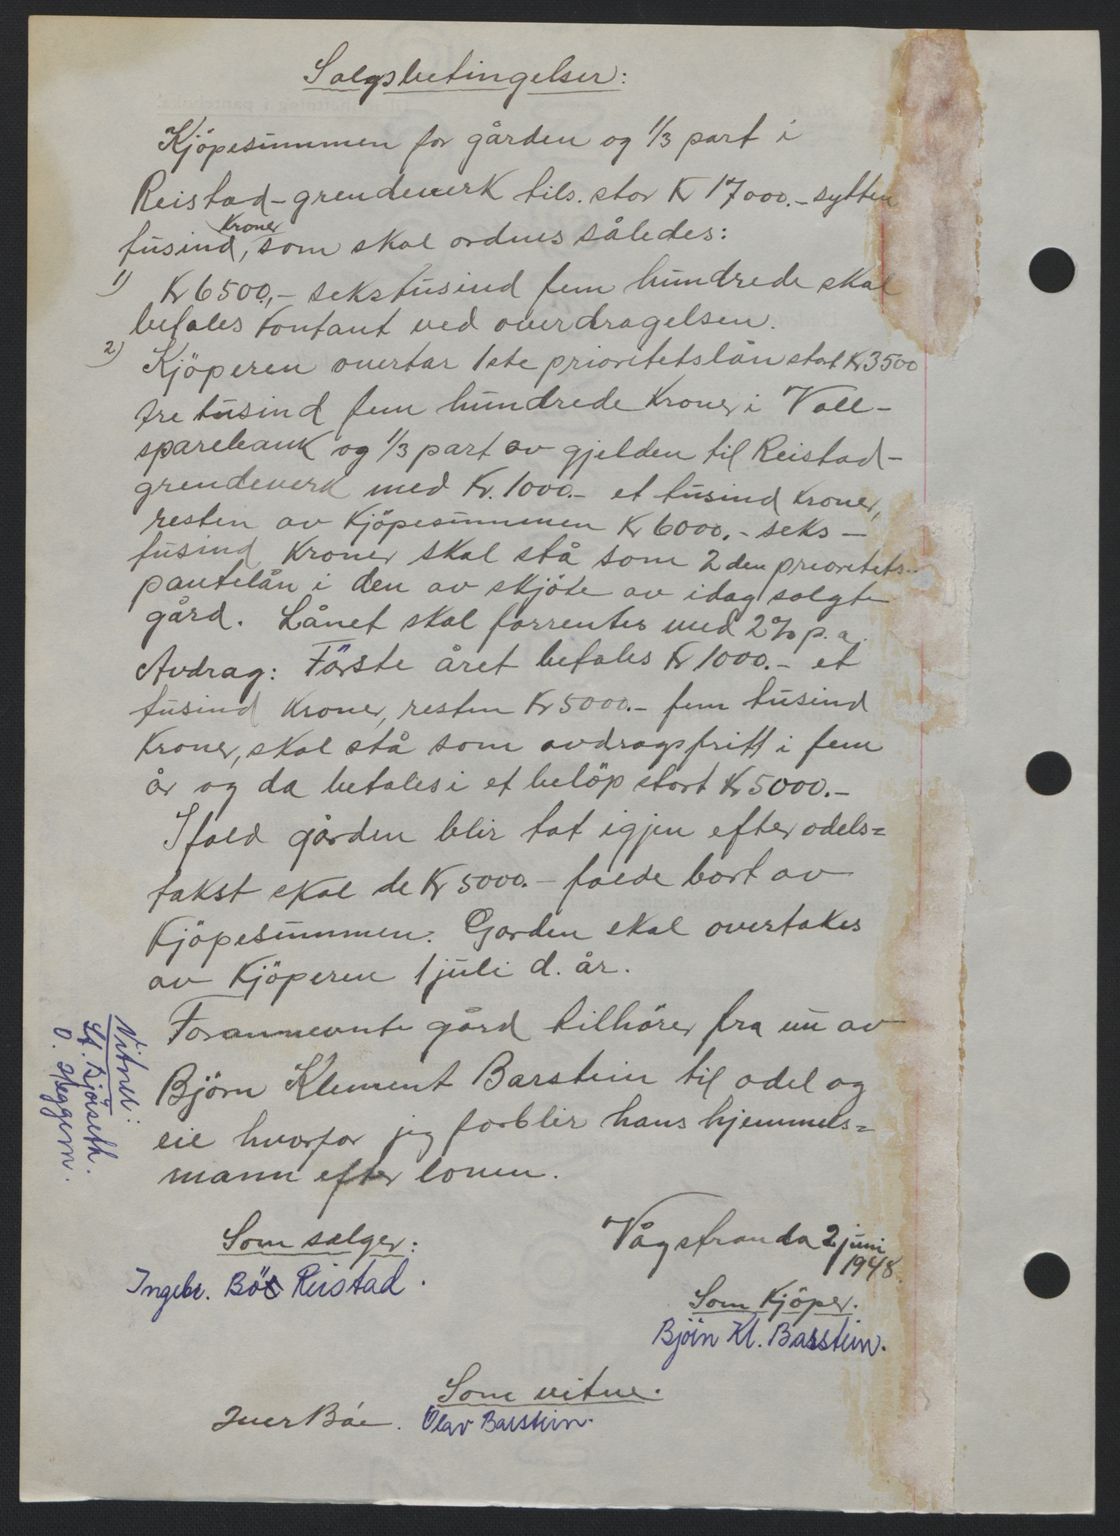 Salgsbetingelser:
Kjöpesummen for gården og 1/3 part i
Reistad-grendeverk tils. stor Kr 17000.- sytten
tusind Kroner, som skal ordnes således:
1) Kr 6500,- sekstusind fem hundrede skal
betales kontant ved overdragelsen.
2) Kjöperen overtar 1ste prioritetslån stort Kr 3500
tre tusind fem hundrede Kroner i Voll-
sparebank og 1/3 part av gjelden til Reistad-
grendeverk med Kr. 1000.- et tusind kroner,
resten av Kjöpesummen Kr 6000.- seks-
tusind Kroner skal stå som 2den prioritets-
pantelån i den av skjöte av idag solgte
gård. Lånet skal forrentes med 2% p.a.
Avdrag: Förste året betales Kr 1000.- et
tusind Kroner, resten Kr 5000.- fem tusind
Kroner, skal stå som avdragsfritt i fem
år og da betales i et belöp stort Kr 5000.-
Ifald gården blir tat igjen efter odels=
takst skal de Kr 5000.- falde bort av
Kjöpesummen. Garden skal overtakes
av Kjöperen 1 juli d. år.
Forannevnte gård tilhörer fra nu av
Björn Klement Barstein til odel og
eie hvorfor jeg forblir hans hjemmels=
mann efter loven.
Vitner:
St. Bjöiseth.
O. Heggem.
Vågstranda 2 juni
1948.
Som sælger:
Ingebr. Böe Reistad.
Som Kjöper.
Björn Kl. Barstein.
Som vitne.
Iver Böe. Olav Barstein.